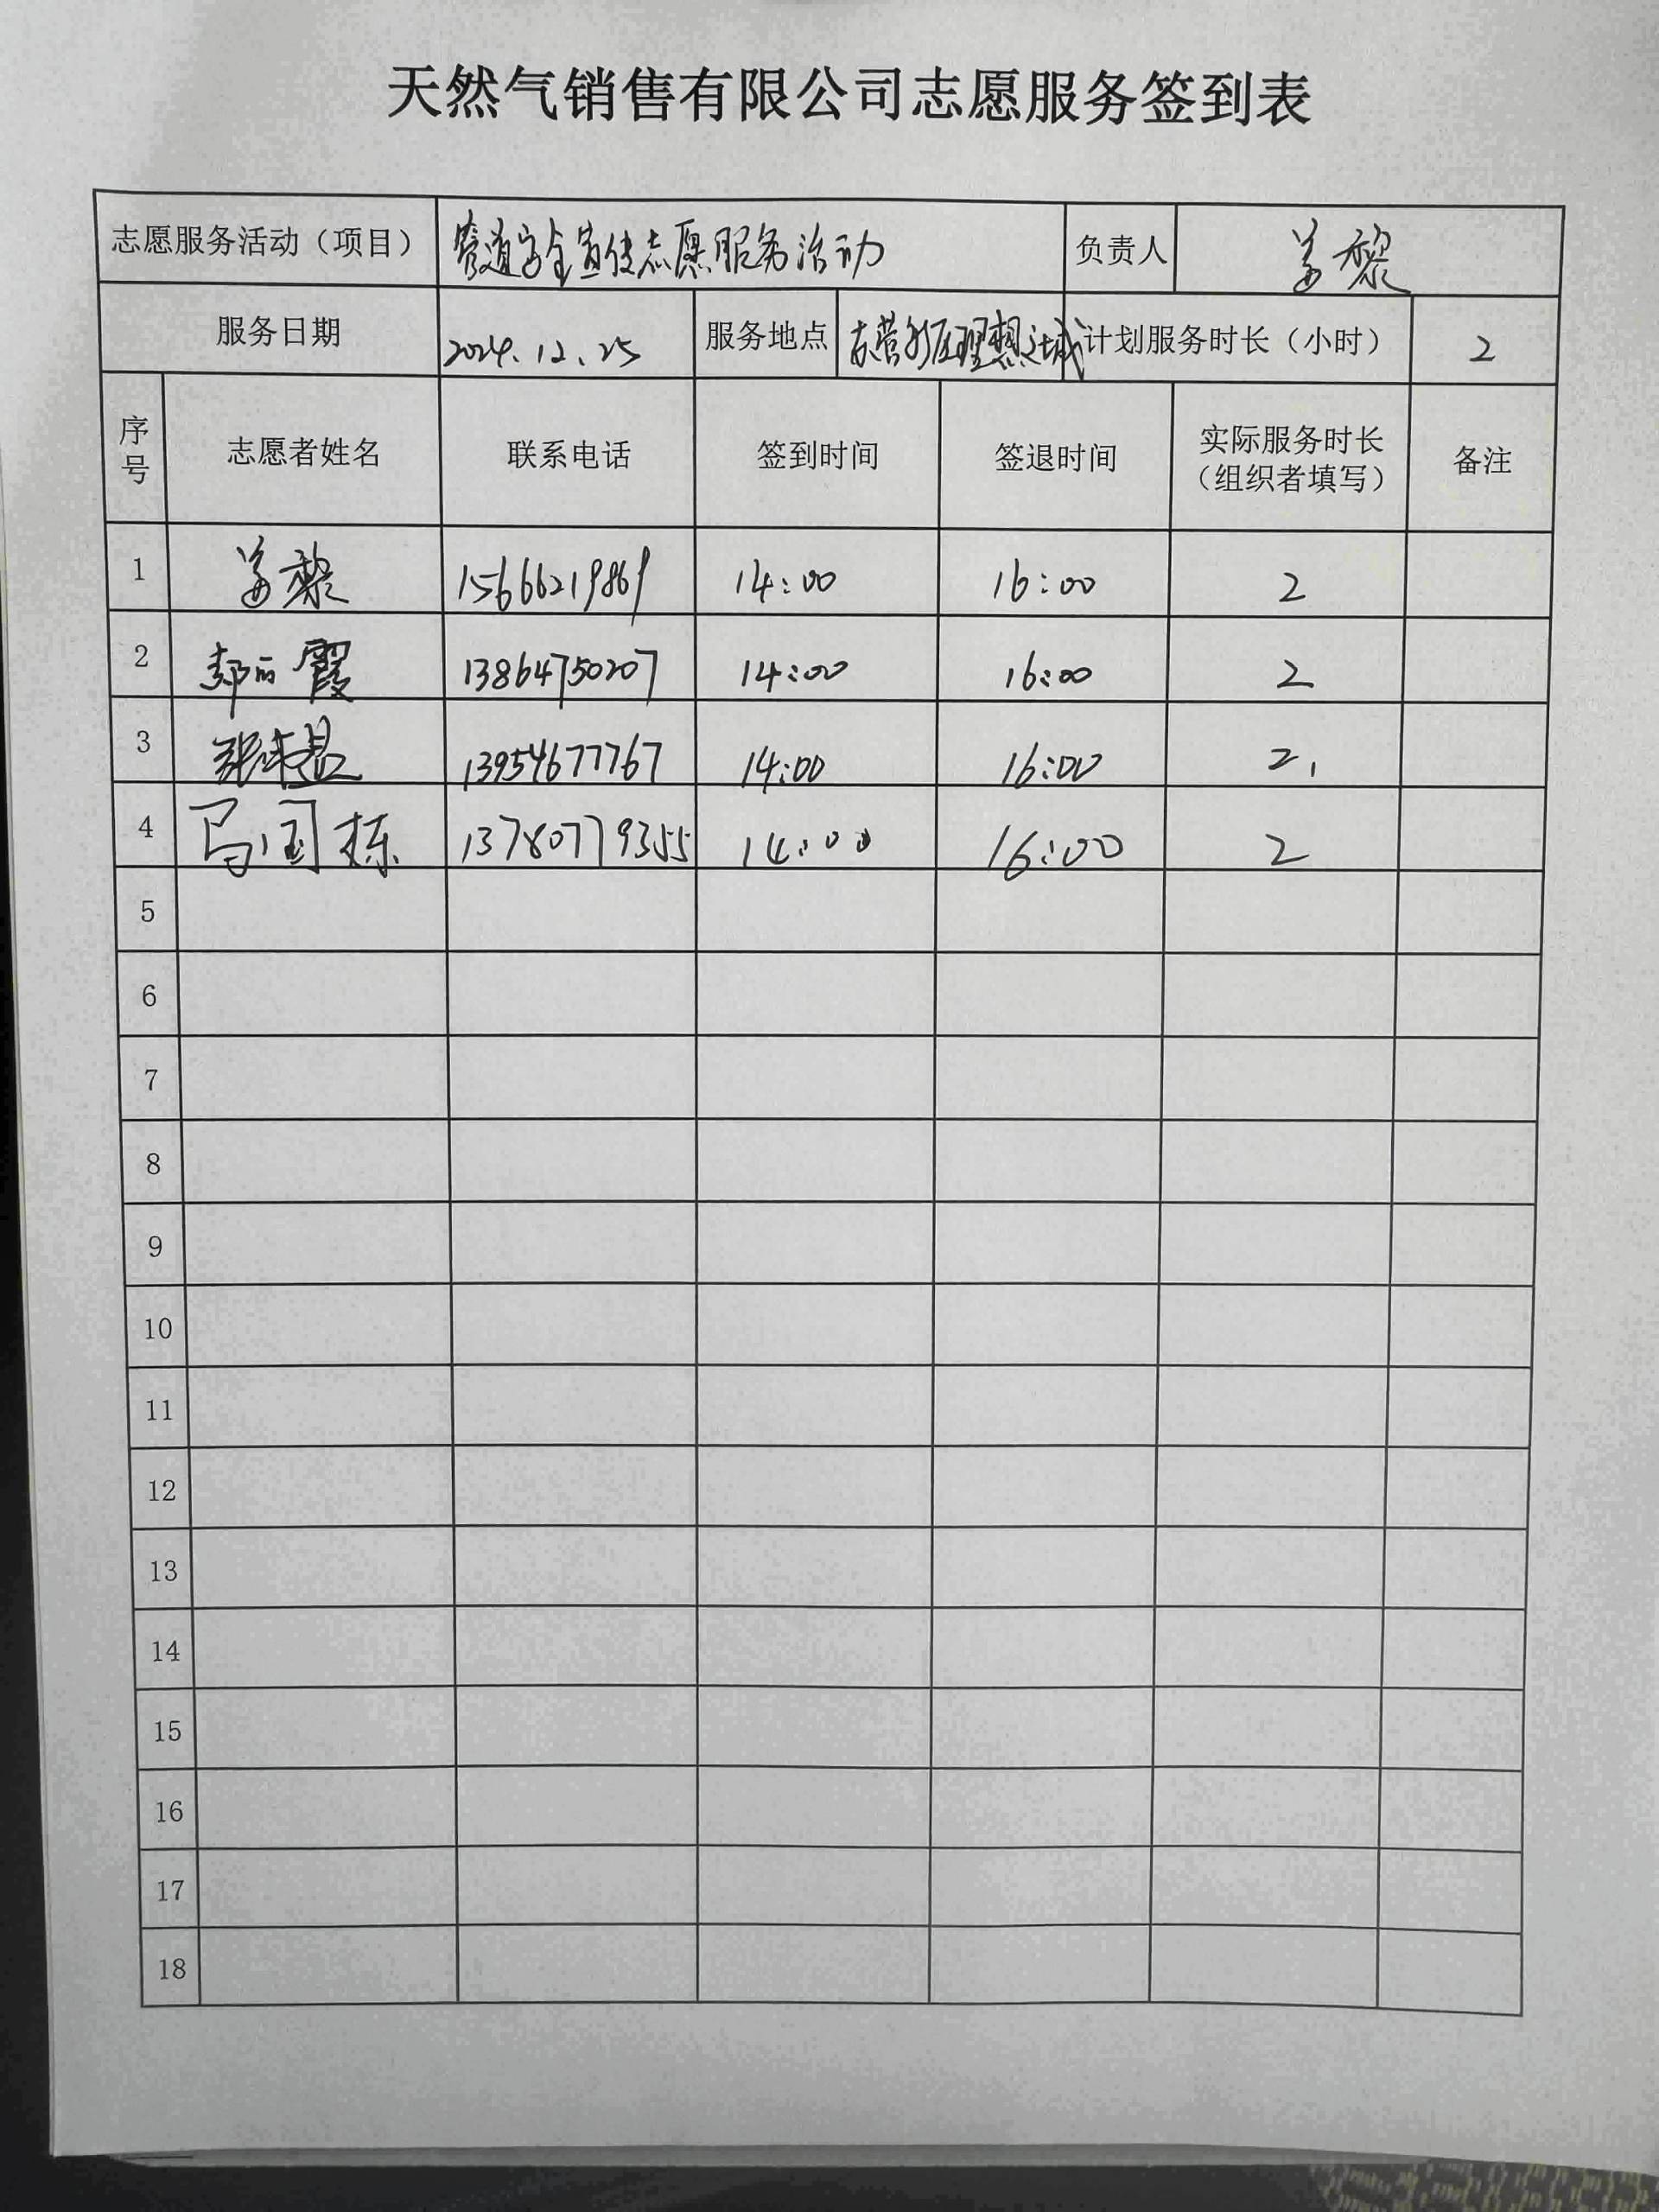 天然气销售有限公司志愿服务签到表
志愿服务活动（项目） 管道安全宣传志愿服务活动 负责人 姜黎
服务日期 2024.12.25 服务地点 东营新区理想之城 计划服务时长（小时） 2
序号 志愿者姓名 联系电话 签到时间 签退时间 实际服务时长（组织者填写） 备注
1 姜黎 15666219869 14:00 16:00 2
2 郝丽霞 13864750207 14:00 16:00 2
3 13954677767 14:00 16:00 2
4 马国栋 13780779355 14:00 16:00 2
5
6
7
8
9
10
11
12
13
14
15
16
17
18